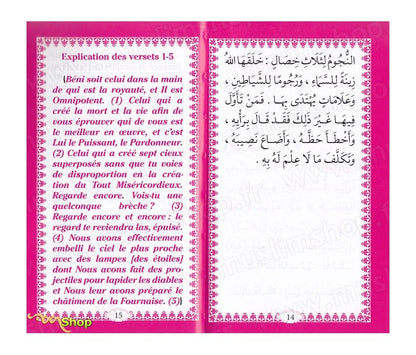 Explication des versets 1-5
(Béni soit celui dans la main
de qui est la royauté, et Il est
Omnipotent. (1) Celui qui a
créé la mort et la vie afin de
vous éprouver qui de vous est
le meilleur en œuvre, et c'est
Lui le Puissant, le Pardonneur.
(2) Celui qui a créé sept cieux
superposés sans que tu voies
de disproportion en la créa-
tion du Tout Miséricordieux.
Regarde encore. Vois-tu une
quelconque brèche ? (3)
Regarde encore et encore : le
regard te reviendra las, épuisé.
(4) Nous avons effectivement
embelli le ciel le plus proche
avec des lampes [des étoiles]
dont Nous avons fait des pro-
jectiles pour lapider les diables
et Nous leur avons préparé le
châtiment de la Fournaise. (5))
15
النُّجُومُ لِثَلَاثِ خِصَالٍ : خَلَقَهَا اللهُ
زِينَةً لِلسَّمَاءِ ، وَرُجُومًا لِلشَّيَاطِينِ ،
وَعَلَامَاتٍ يُهْتَدَى بِهَا . فَمَنْ تَأَوَّلَ
فِيهَا غَيْرَ ذَلِكَ فَقَدْ قَالَ بِرَأْيِهِ ،
وَأَخْطَأَ حَظَّهُ ، وَأَضَاعَ نَصِيبَهُ ،
وَتَكَلَّفَ مَا لَا عِلْمَ لَهُ بِهِ .
14
Shop